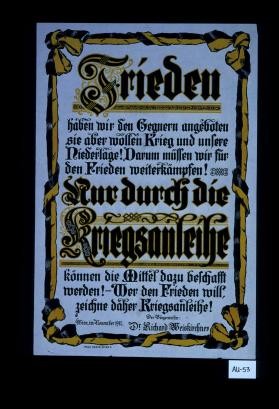 Frieden
haben wir den Gegnern angeboten
sie aber wollen Krieg und unsere
Niederlage! Darum müssen wir für
den Frieden weiterkämpfen!
Nur durch die
Kriegsanleihe
können die Mittel dazu beschafft
werden! – Wer den Frieden will,
zeichne daher Kriegsanleihe!
Der Bürgermeister:
Wien, im November 1917. Dr. Richard Weiskirchner
AU-53